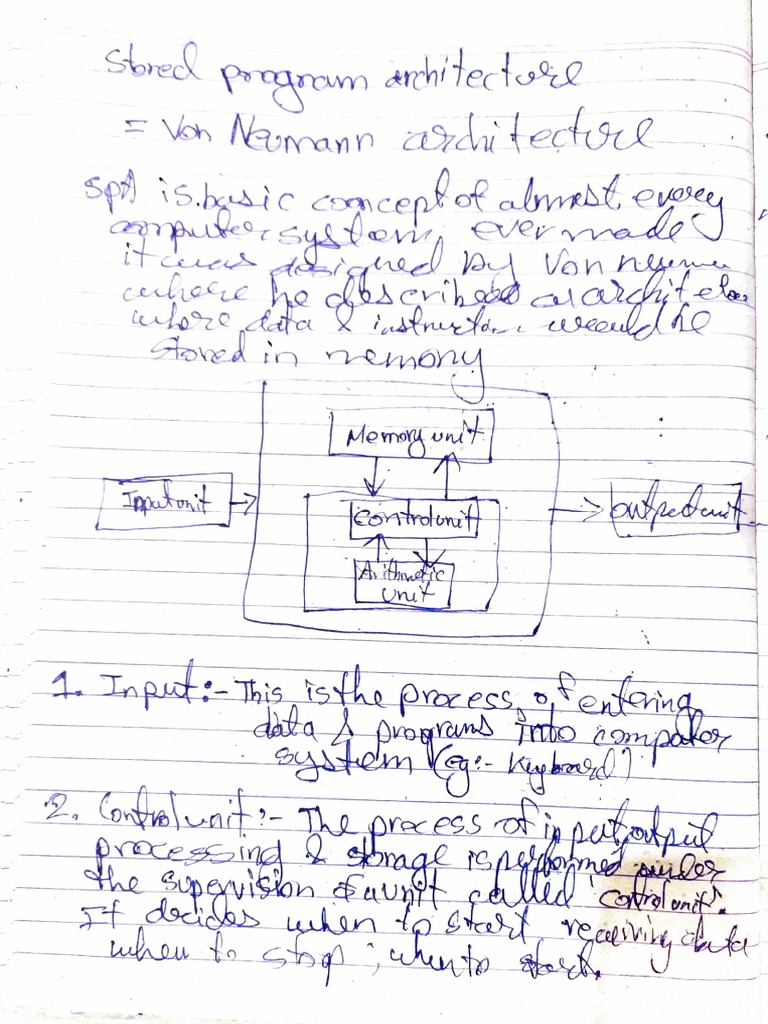 Stored program architecture
= Von Neumann architecture
SPA is basic concept of almost every
computer system ever made
it was designed by Von
where he described architec
where data & instruction would be
stored in memory
Memory unit
Input unit
Control unit
output unit
Arithmetic
unit
1. Input:- This is the process of entering
data & programs into computer
system (eg:- Keyboard)
2. Control unit:- The process of input, output
processing & storage is performed under
the supervision of a unit called 'control unit'.
It decides when to start receiving data
when to stop ; when to start.